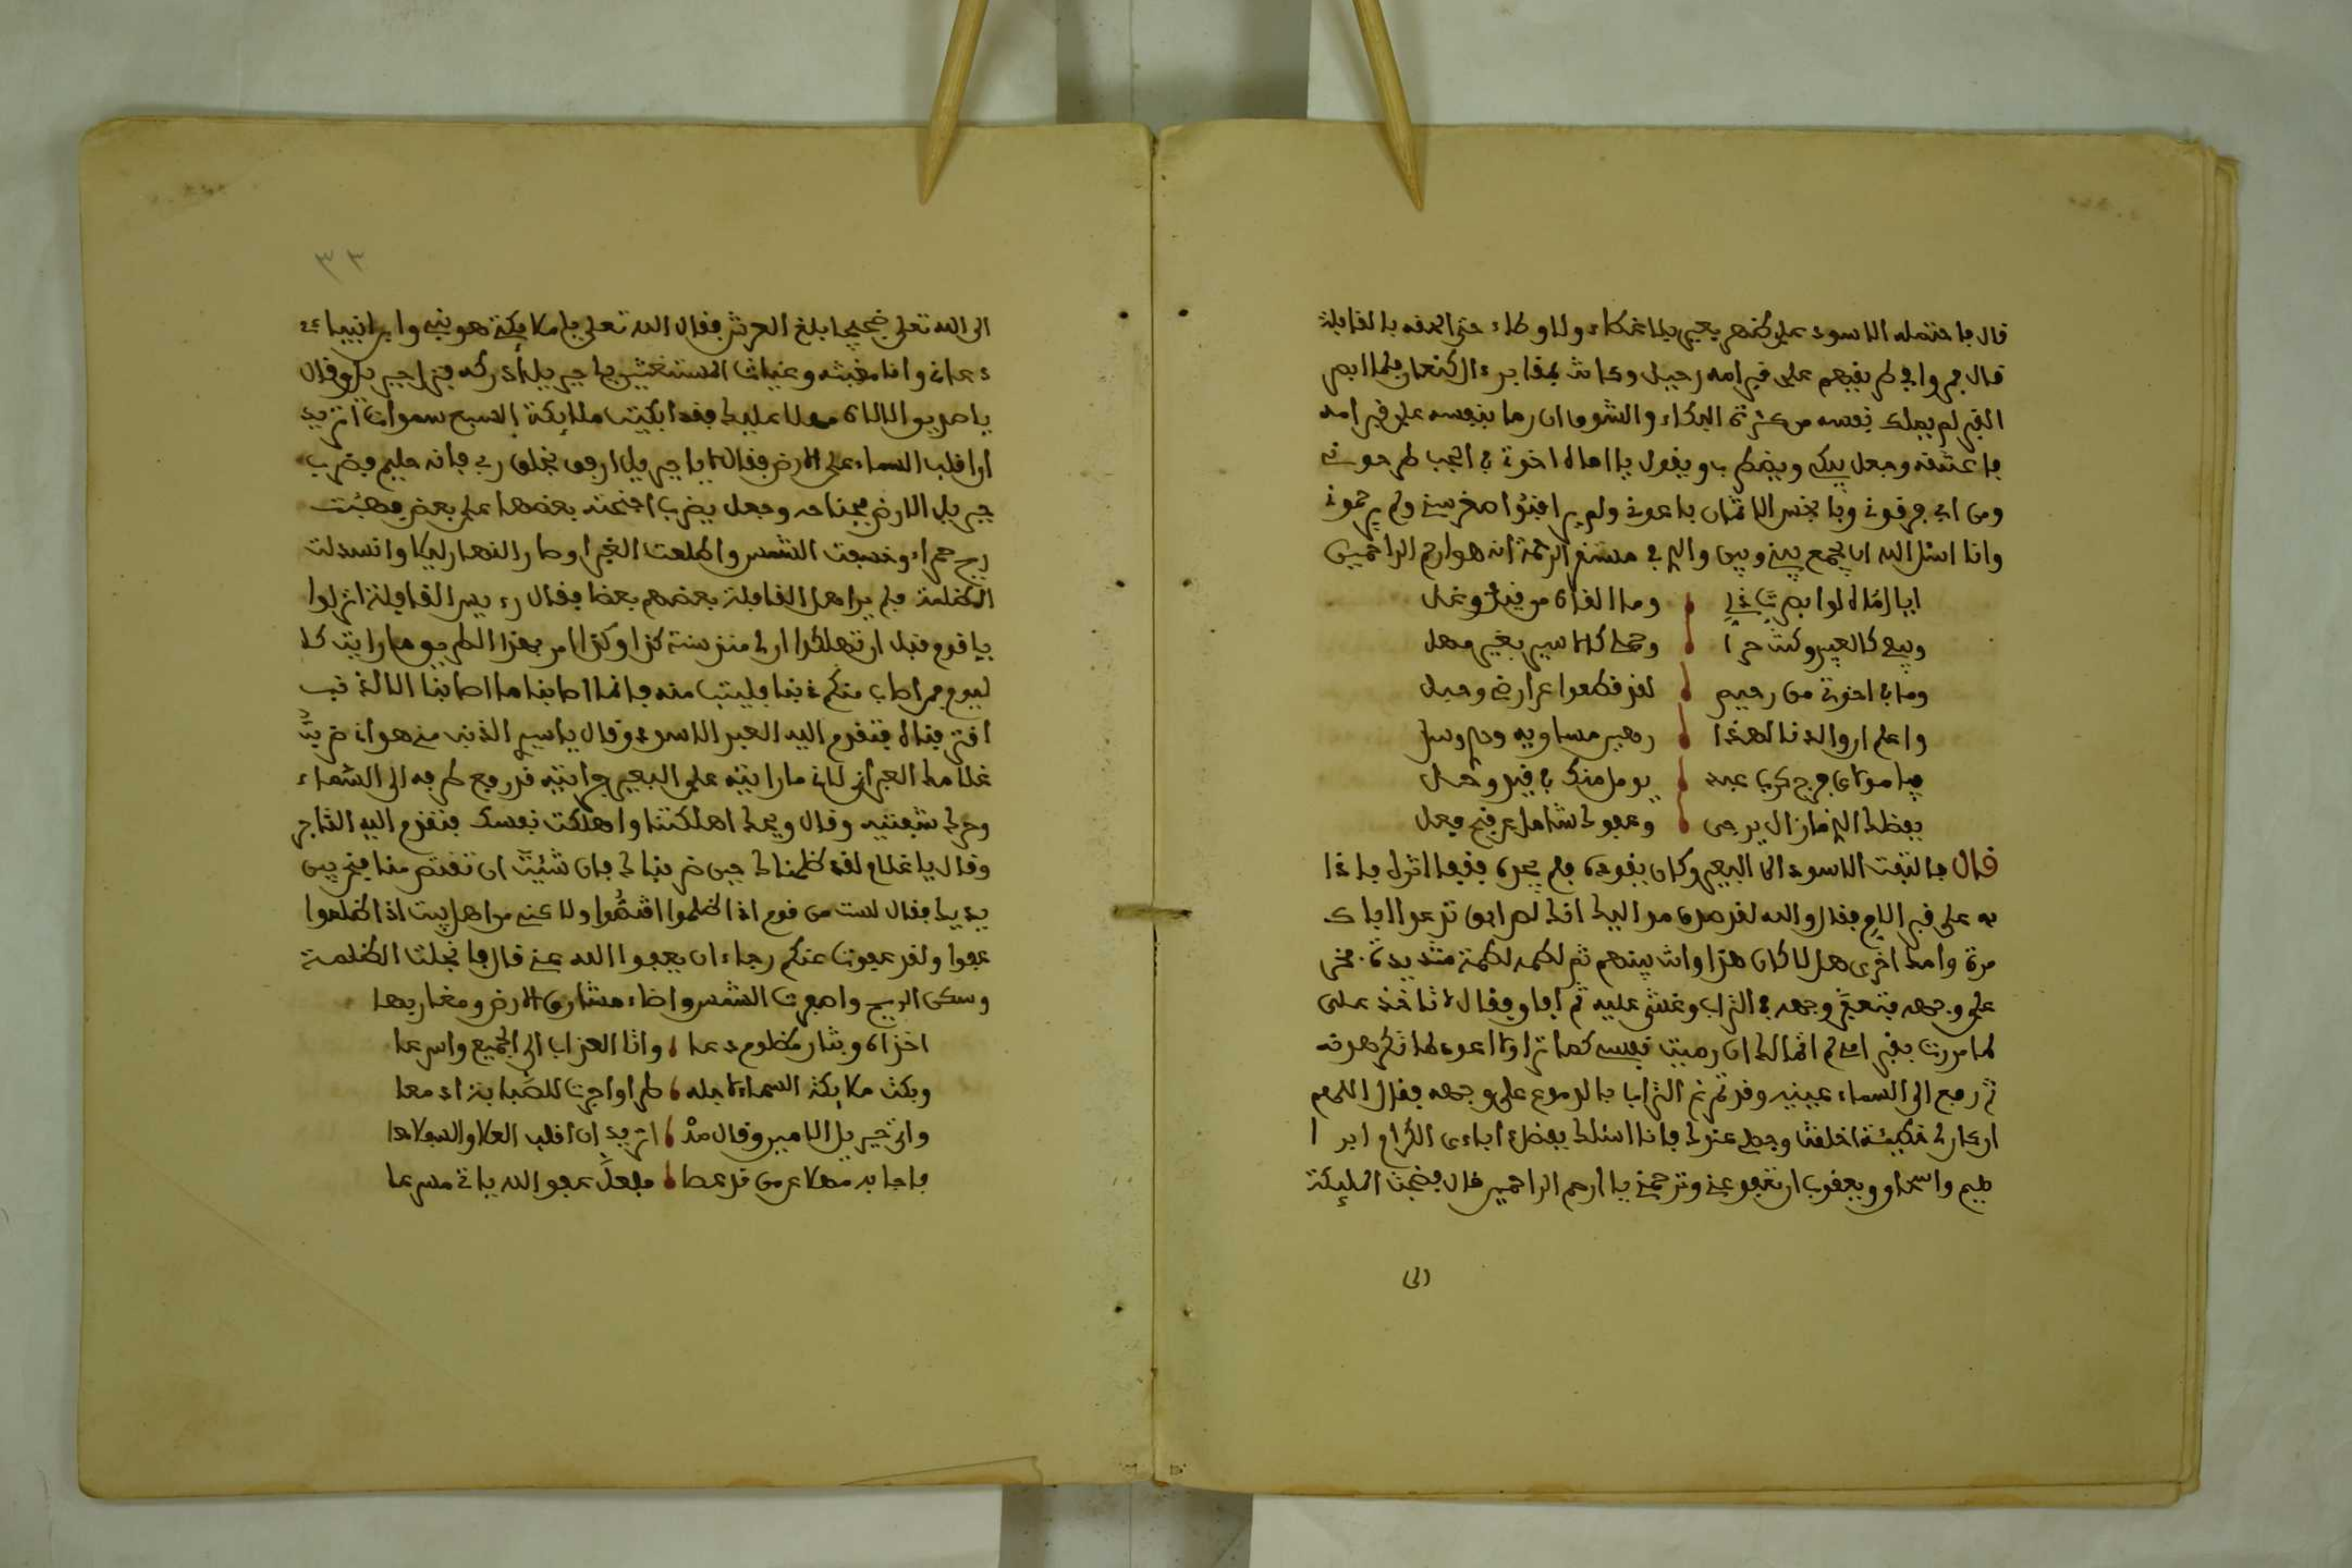 قال فاحتمله الاسود على ظهر بعير بلا غطاء ولا وطاء حتى الحقه بالقابلة
قال فمروا في طريقهم على قبر امه رحيل وكانت بمقابر ءال كنعان فلما ابصر
القبر لم يملك نفسه من كثرة البكاء والشوق ان رما بنفسه على قبر امه
فاعتنقه وجعل يبكي ويضطرب ويقول يا اماه اخوتي في الجب طرحوني
ومن ابي فرقوني وبابخس الاثمان باعوني ولم يراقبوا صغر سني ولم يرحموني
وانا اسئل الله ان يجمع بيني وبين والدي في مستقر الرحمة انه هو ارحم الراحمين
ايا اماه لو ابصرت ذلي وما القاه من قيد وغل
وبيعي كالعبيد وكنت حرا وحملي كالاسير بغير مهل
وما في اخوتي من رحيم لقد قطعوا عن ارضي وحبل
واعلم ان والدنا لهذا رهين مساويه وحزن
فيا مولاي فرج كرب عبد يومل منك في قيد وغل
بفضلك الذي ما زال يرجى وعفوك شامل عن قبح فعل
قال فالتفت الاسود الى البعير وكان يقوده فلم يجده فقفا اثره فاذا
به على قبر الام فقال والله لقد صدق مواليك انك لص ابق تزعم الاباق
مرة واحدة اخرى هل لا كان هذا وانت بينهم ثم لطمه لطمة شديدة فخر
على وجهه فتعفر وجهه في التراب وغشي عليه ثم افاق وقال لا تاخذ على
لما مررت بقبر امي لم اتمالك ان رميت نفسي كما ترا ولا اعود لما تكره قط
ثم رفع الى السماء عينيه وقد تمرغ الترابا بالدموع على وجهه فقال اللهم
ان كان لي خطيئة اخلفت وجهي عندك فانا اسئلك بفضل اباءي الكرام ابرا
هيم واسحاق ويعقوب ان تعفو عني وترحمني يا ارحم الراحمين قال فضجت المليكة
الى
٣٣
الى الله تعلى ضجيجا بلغ العرش فقال الله تعلى يا ملايكتي هو نبيي وابن انبياءي
دعاني وانا مغيثه وغياث المستغيثين يا جبريل أدركه فنزل جبريل وقال
يا صديق الالاه مهلا عليك فقد ابكيت ملائكة السبع سموات اتريد
ان اقلب السماء على الارض فقال لا يا جبريل ارفق بخلق ربي فانه حليم فضرب
جبريل الارض بجناحه وجعل يضرب اجنحته بعضها على بعض فهبت
ريح حمراء وخسفت الشمس واطلعت الغبرا وصار النهار ليلا وانسدلت
الظلمة فلم ير اهل القافلة بعضهم بعضا فقال رءيس القافلة انزلوا
يا قوم قبل ان تهلكوا ان لي منذ سنة كذا وكذا امر بهذا الطريق ما رايت كا
ليوم فمن اصاب منكم ذنبا فليتب منه فانما اصابنا ما اصابنا الا لذنب
اقترفناه فتقدم اليه العبد الاسود وقال يا سيدي الذنب مني هو اني ضربت
غلامك العبراني لاني ما رايته على البعير فرايته قد رفع طرفه الى السماء
وحرك شفتيه وقال ويحك اهلكتنا واهلكت نفسك فتقدم اليه التاجر
وقال يا غلام لقد ظلمناك حين ضربناك فان شئت ان تقتص منا فنحن بين
يديك فقال لست من قوم اذا ظلموا اقتصوا ولا عني من اهل بيت اذا ظلموا
عفوا ولقد عفوت عنكم رجاء ان يعفوا الله عني قال فانجلت الظلمة
وسكن الريح واصفرت الشمس واضاء مشارق الارض ومغاربها
اخزاه وبثار مظلوم دعا واتا العذاب الى الجميع واسرعا
وبكت ملايكة السماء لاجله طرا واجرت للصبابة ادمعا
واتى جبريل الامين وقال مذ اتريد ان اقلب العلا والسفلا معا
فاجابه مهلا عن من قد عصا فلعل عفو الله ياتي مسرعا